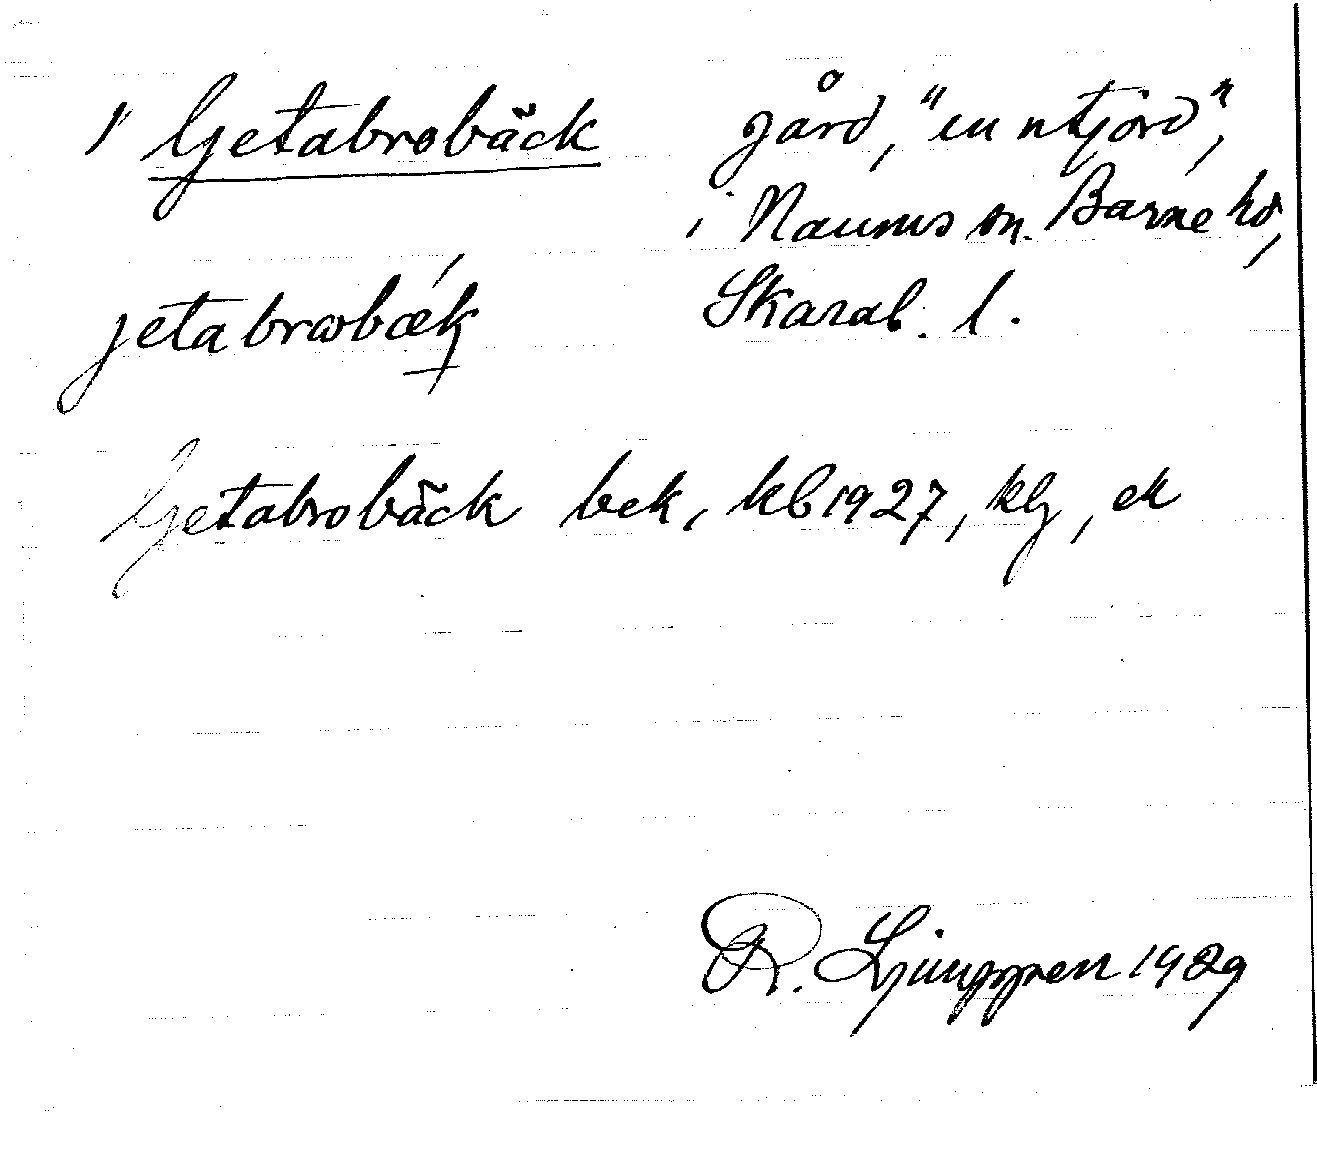 1' Getabrobäck gård, "en utjord",
i Naums sn. Barne hd,
jetabrobæk Skarab. l.
Getabrobäck bek, kb 1927, klj, ek
R. Ljunggren 1929